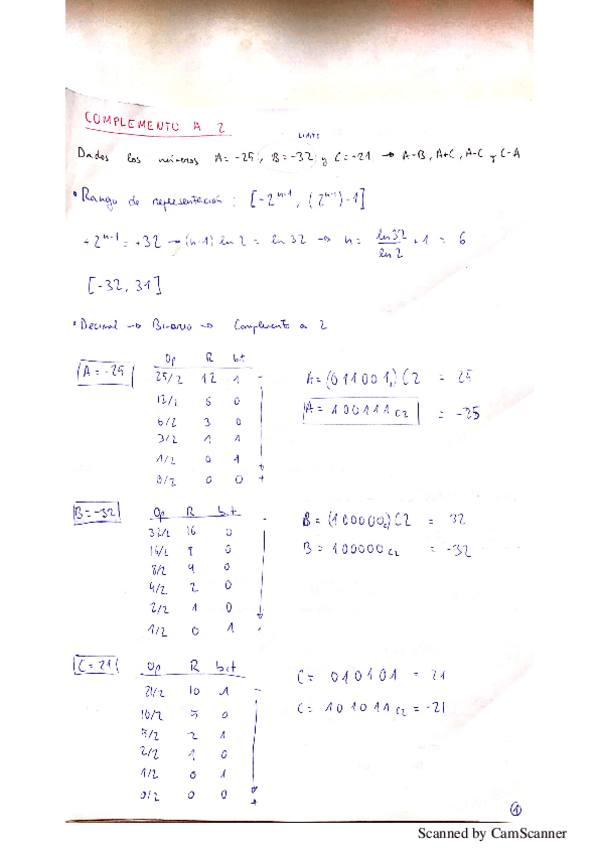 COMPLEMENTO A 2
LIMITE
Dados los números A=-25, B=-32 y C=-21 → A-B, A+C, A-C y C-A
• Rango de representación: [-2^n-1, (2^n-1)-1]
+2^n-1 = +32 → (n-1) ln 2 = ln 32 → n = ln 32 / ln 2 + 1 = 6
[-32, 31]
• Decimal → Binario → Complemento a 2
A=-25
Op R bit
25/2 12 1
12/2 6 0
6/2 3 0
3/2 1 1
1/2 0 1
0/2 0 0
A=(011001₂)C2 = 25
A=100111 C2 = -25
B=-32
Op R bit
32/2 16 0
16/2 8 0
8/2 4 0
4/2 2 0
2/2 1 0
1/2 0 1
B=(100000₂)C2 = 32
B=100000 C2 = -32
C=21
Op R bit
21/2 10 1
10/2 5 0
5/2 2 1
2/2 1 0
1/2 0 1
0/2 0 0
C= 010101 = 21
C= 101011 C2 = -21
1
Scanned by CamScanner